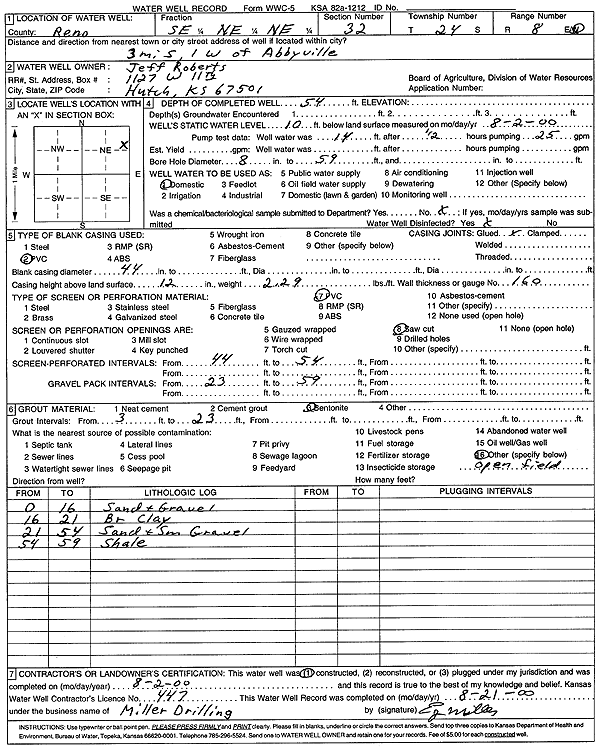 WATER WELL RECORD Form WWC-5 KSA 82a-1212 ID No.
1 LOCATION OF WATER WELL: Fraction Section Number Township Number Range Number
County: Reno SE ¼ NE ¼ NE ¼ 32 T 24 S R 8 E/W
Distance and direction from nearest town or city street address of well if located within city?
3 mi S 1 W of Abbyville
2 WATER WELL OWNER: Jeff Roberts
RR#, St. Address, Box # : 1127 W 11th Board of Agriculture, Division of Water Resources
City, State, ZIP Code : Hutch, KS 67501 Application Number:
3 LOCATE WELL'S LOCATION WITH AN "X" IN SECTION BOX:
N
NW NE X
W E
SW SE
S
1 Mile
4 DEPTH OF COMPLETED WELL 54 ft. ELEVATION:
Depth(s) Groundwater Encountered 1 ft. 2 ft. 3 ft.
WELL'S STATIC WATER LEVEL 10 ft. below land surface measured on mo/day/yr 8-2-00
Pump test data: Well water was 14 ft. after 1/2 hours pumping 25 gpm
Est. Yield gpm: Well water was ft. after hours pumping gpm
Bore Hole Diameter 8 in. to 59 ft., and in. to ft.
WELL WATER TO BE USED AS: 5 Public water supply 8 Air conditioning 11 Injection well
1 Domestic 3 Feedlot 6 Oil field water supply 9 Dewatering 12 Other (Specify below)
2 Irrigation 4 Industrial 7 Domestic (lawn & garden) 10 Monitoring well
Was a chemical/bacteriological sample submitted to Department? Yes No X ; If yes, mo/day/yrs sample was submitted
Water Well Disinfected? Yes X No
5 TYPE OF BLANK CASING USED: 5 Wrought iron 8 Concrete tile CASING JOINTS: Glued X Clamped
1 Steel 3 RMP (SR) 6 Asbestos-Cement 9 Other (specify below) Welded
2 PVC 4 ABS 7 Fiberglass Threaded
Blank casing diameter 44 in. to ft., Dia in. to ft., Dia in. to ft.
Casing height above land surface 12 in., weight 2.29 lbs./ft. Wall thickness or gauge No. 160
TYPE OF SCREEN OR PERFORATION MATERIAL: 7 PVC 10 Asbestos-cement
1 Steel 3 Stainless steel 5 Fiberglass 8 RMP (SR) 11 Other (specify)
2 Brass 4 Galvanized steel 6 Concrete tile 9 ABS 12 None used (open hole)
SCREEN OR PERFORATION OPENINGS ARE: 5 Gauzed wrapped 8 Saw cut 11 None (open hole)
1 Continuous slot 3 Mill slot 6 Wire wrapped 9 Drilled holes
2 Louvered shutter 4 Key punched 7 Torch cut 10 Other (specify) ft.
SCREEN-PERFORATED INTERVALS: From 44 ft. to 54 ft., From ft. to ft.
From ft. to ft., From ft. to ft.
GRAVEL PACK INTERVALS: From 23 ft. to 59 ft., From ft. to ft.
From ft. to ft., From ft. to ft.
6 GROUT MATERIAL: 1 Neat cement 2 Cement grout 3 Bentonite 4 Other
Grout Intervals: From 3 ft. to 23 ft., From ft. to ft., From ft. to ft.
What is the nearest source of possible contamination: 10 Livestock pens 14 Abandoned water well
1 Septic tank 4 Lateral lines 7 Pit privy 11 Fuel storage 15 Oil well/Gas well
2 Sewer lines 5 Cess pool 8 Sewage lagoon 12 Fertilizer storage 16 Other (specify below)
3 Watertight sewer lines 6 Seepage pit 9 Feedyard 13 Insecticide storage open field
Direction from well? How many feet?
FROM TO LITHOLOGIC LOG FROM TO PLUGGING INTERVALS
0 16 Sand & Gravel
16 21 Br Clay
21 54 Sand & Sm Gravel
54 59 Shale
7 CONTRACTOR'S OR LANDOWNER'S CERTIFICATION: This water well was (1) constructed, (2) reconstructed, or (3) plugged under my jurisdiction and was
completed on (mo/day/year) 8-2-00 and this record is true to the best of my knowledge and belief. Kansas
Water Well Contractor's Licence No. 447 This Water Well Record was completed on (mo/day/yr) 8-21-00
under the business name of Miller Drilling by (signature)
INSTRUCTIONS: Use typewriter or ball point pen. PLEASE PRESS FIRMLY and PRINT clearly. Please fill in blanks, underline or circle the correct answers. Send top three copies to Kansas Department of Health and
Environment, Bureau of Water, Topeka, Kansas 66620-0001. Telephone 785-296-5524. Send one to WATER WELL OWNER and retain one for your records. Fee of $5.00 for each constructed well.